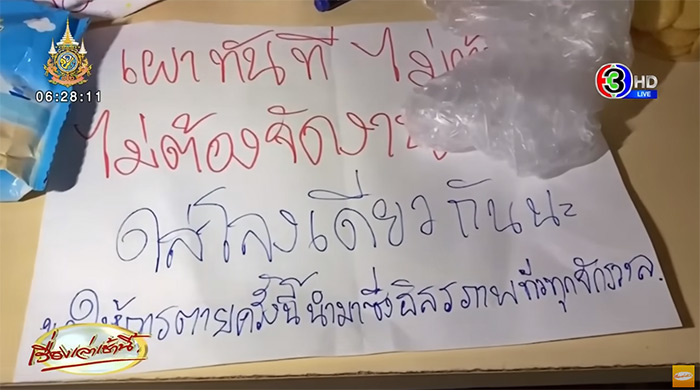 06:28:11
3 HD
LIVE
เผาทันที ไม่ต้
ไม่ต้องจัดงาน
ใส่โลงเดียวกันนะ
ให้การตายครั้งนี้นำมาซึ่งอิสรภาพทั่วทุกจักรวาล.
เรื่องเล่าเช้านี้